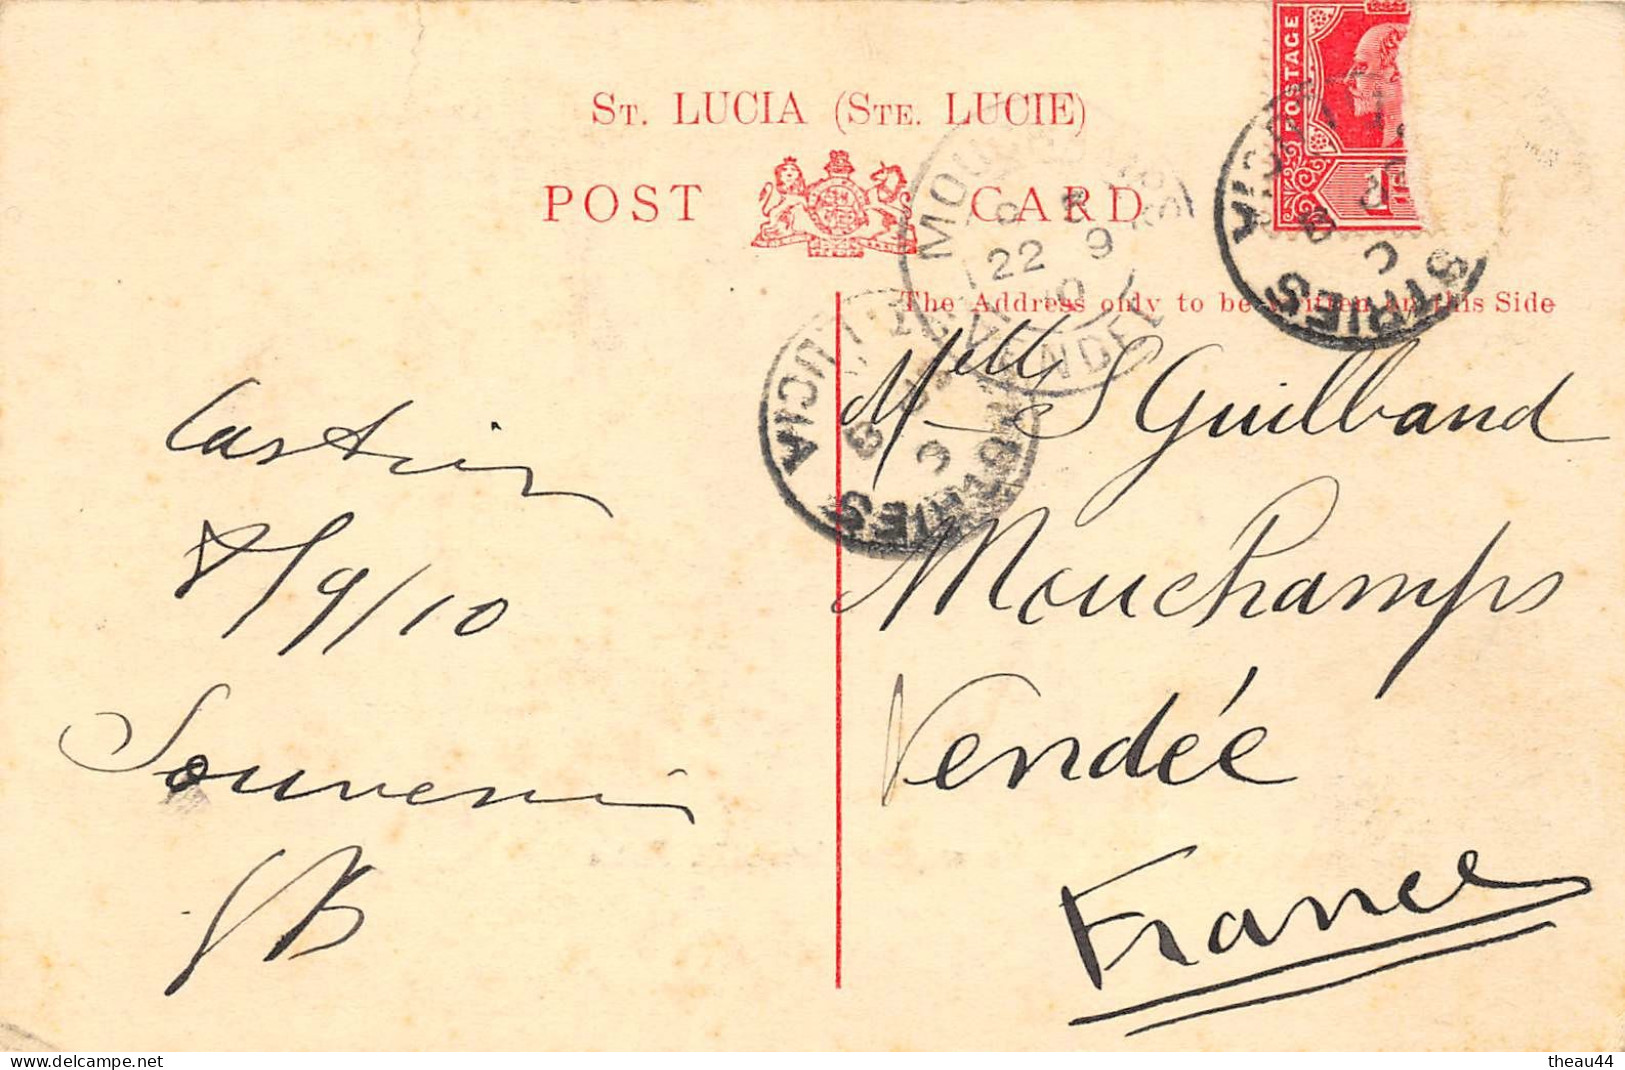 St. LUCIA (Ste. LUCIE)
POST CARD
The Address only to be written on this Side
POSTAGE
1d
MOUCHAMPS
22 9
10
VENDÉE
CASTRIES
ST LUCIA
CASTRIES
ST LUCIA
Castries
8/9/10
Souvenir
Melle S Guilbaud
Mouchamps
Vendée
France
delcampe.net
theau44